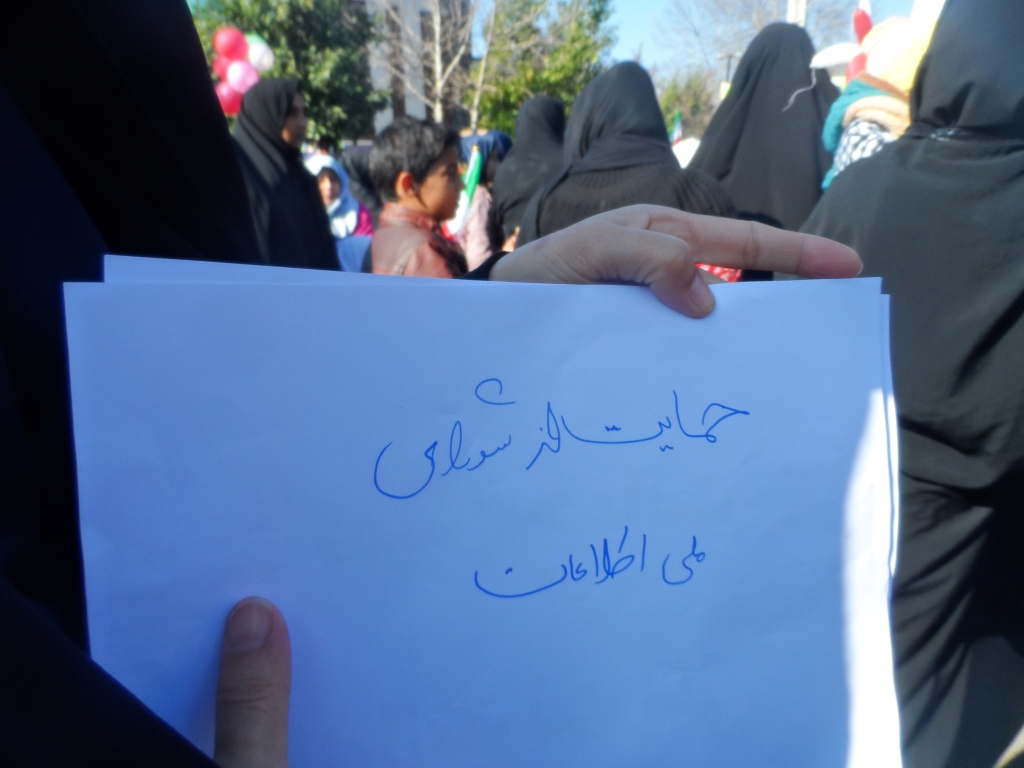 حمایت از شورای
ملی اطلاعات